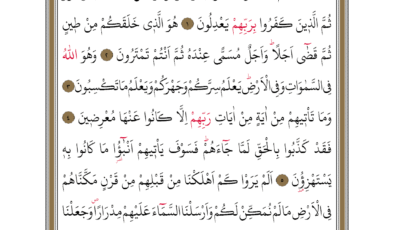 ثُمَّ الَّذِينَ كَفَرُوا بِرَبِّهِمْ يَعْدِلُونَ ﴿١﴾ هُوَ الَّذِى خَلَقَكُمْ مِنْ طِينٍ
ثُمَّ قَضٰٓى اَجَلًاۜ وَاَجَلٌ مُسَمًّى عِنْدَهُ ثُمَّ اَنْتُمْ تَمْتَرُونَ ﴿٢﴾ وَهُوَ اللّٰهُ
فِى السَّمٰوَاتِ وَفِى الْاَرْضِۜ يَعْلَمُ سِرَّكُمْ وَجَهْرَكُمْ وَيَعْلَمُ مَا تَكْسِبُونَ ﴿٣﴾
وَمَا تَأْتِيهِمْ مِنْ اٰيَةٍ مِنْ اٰيَاتِ رَبِّهِمْ اِلَّا كَانُوا عَنْهَا مُعْرِضِينَ ﴿٤﴾
فَقَدْ كَذَّبُوا بِالْحَقِّ لَمَّا جَٓاءَهُمْۜ فَسَوْفَ يَأْتِيهِمْ اَنْبٰٓؤُ۬ا مَا كَانُوا بِهِ
يَسْتَهْزِؤُ۫نَ ﴿٥﴾ اَلَمْ يَرَوْا كَمْ اَهْلَكْنَا مِنْ قَبْلِهِمْ مِنْ قَرْنٍ مَكَّنَّاهُمْ
فِى الْاَرْضِ مَا لَمْ نُمَكِّنْ لَكُمْ وَاَرْسَلْنَا السَّمَٓاءَ عَلَيْهِمْ مِدْرَارًاۖ وَجَعَلْنَا